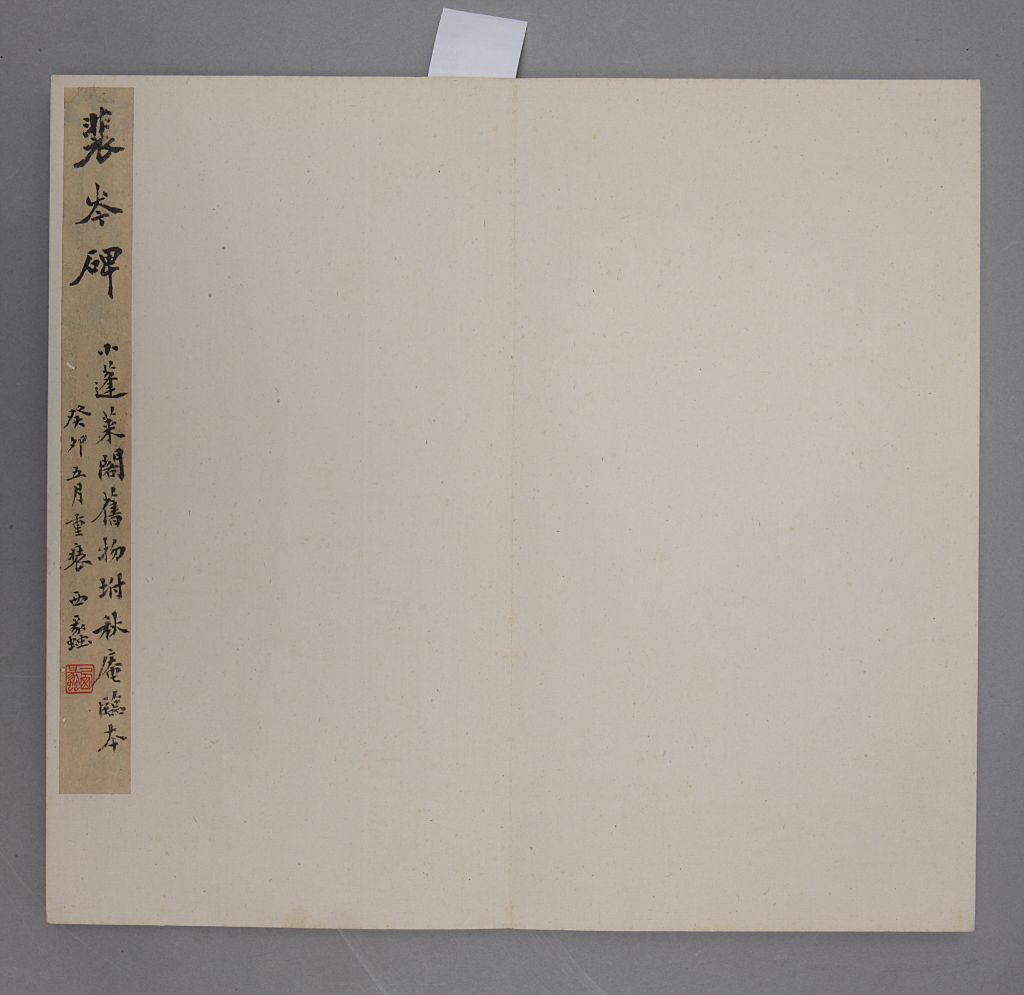 裴岑碑
小蓬萊閣舊物坿秋庵臨本
癸卯五月重裝 西蠡